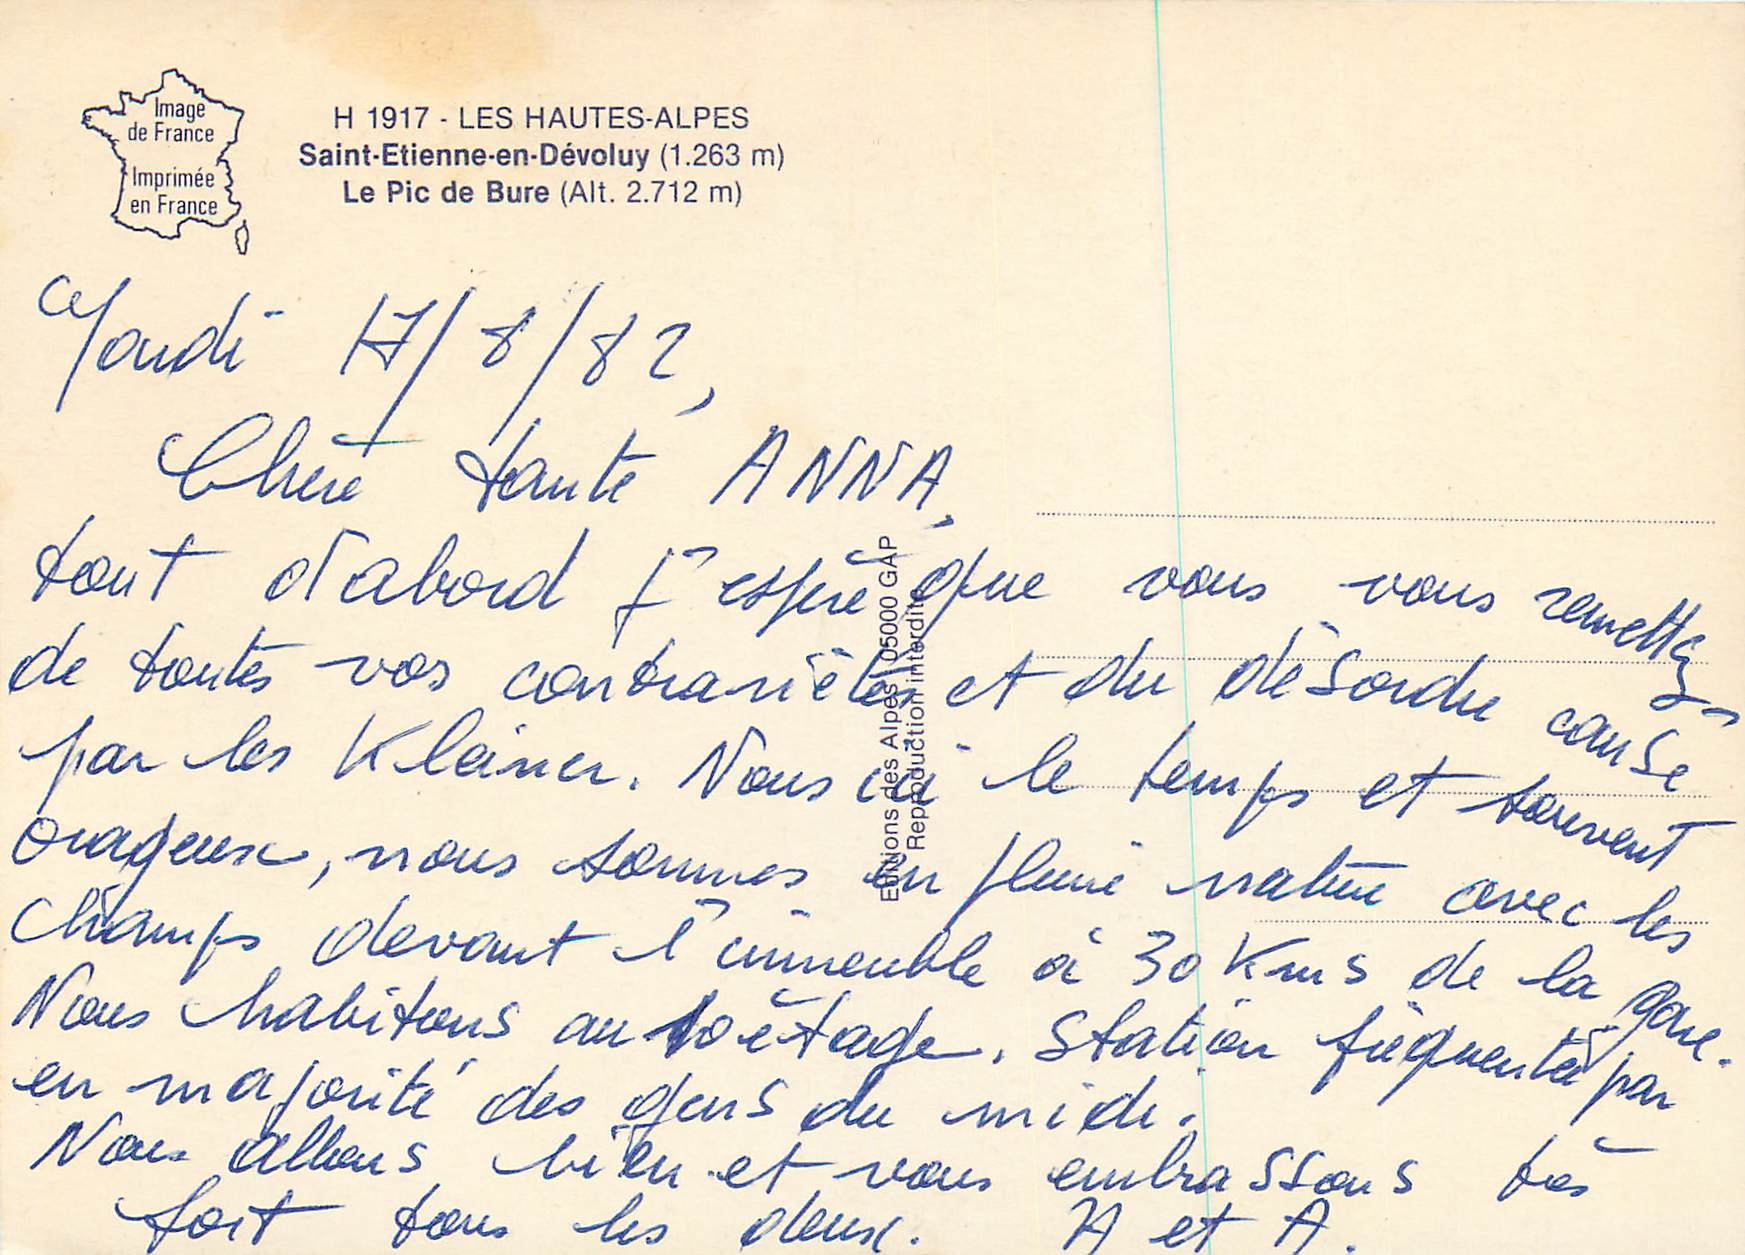 Image
de France
Imprimée
en France
H 1917 - LES HAUTES-ALPES
Saint-Etienne-en-Dévoluy (1.263 m)
Le Pic de Bure (Alt. 2.712 m)
17/8/82,
Chère tante ANNA,
tout d'abord j'espère que vous vous remettez
de toutes vos contrariétés et du désordre cause
par les Kleiner. Nous ici le temps et souvent
orageux, nous sommes en pleine nature avec les
champs devant l'immeuble à 30 Kms de la gare.
Nous habitons au 10 étage. Station fréquentée par
en majorité des gens du midi.
Nous allons bien et vous embrassons très
fort tous les deux. A et A.
Editions des Alpes - 05000 GAP
Reproduction interdite